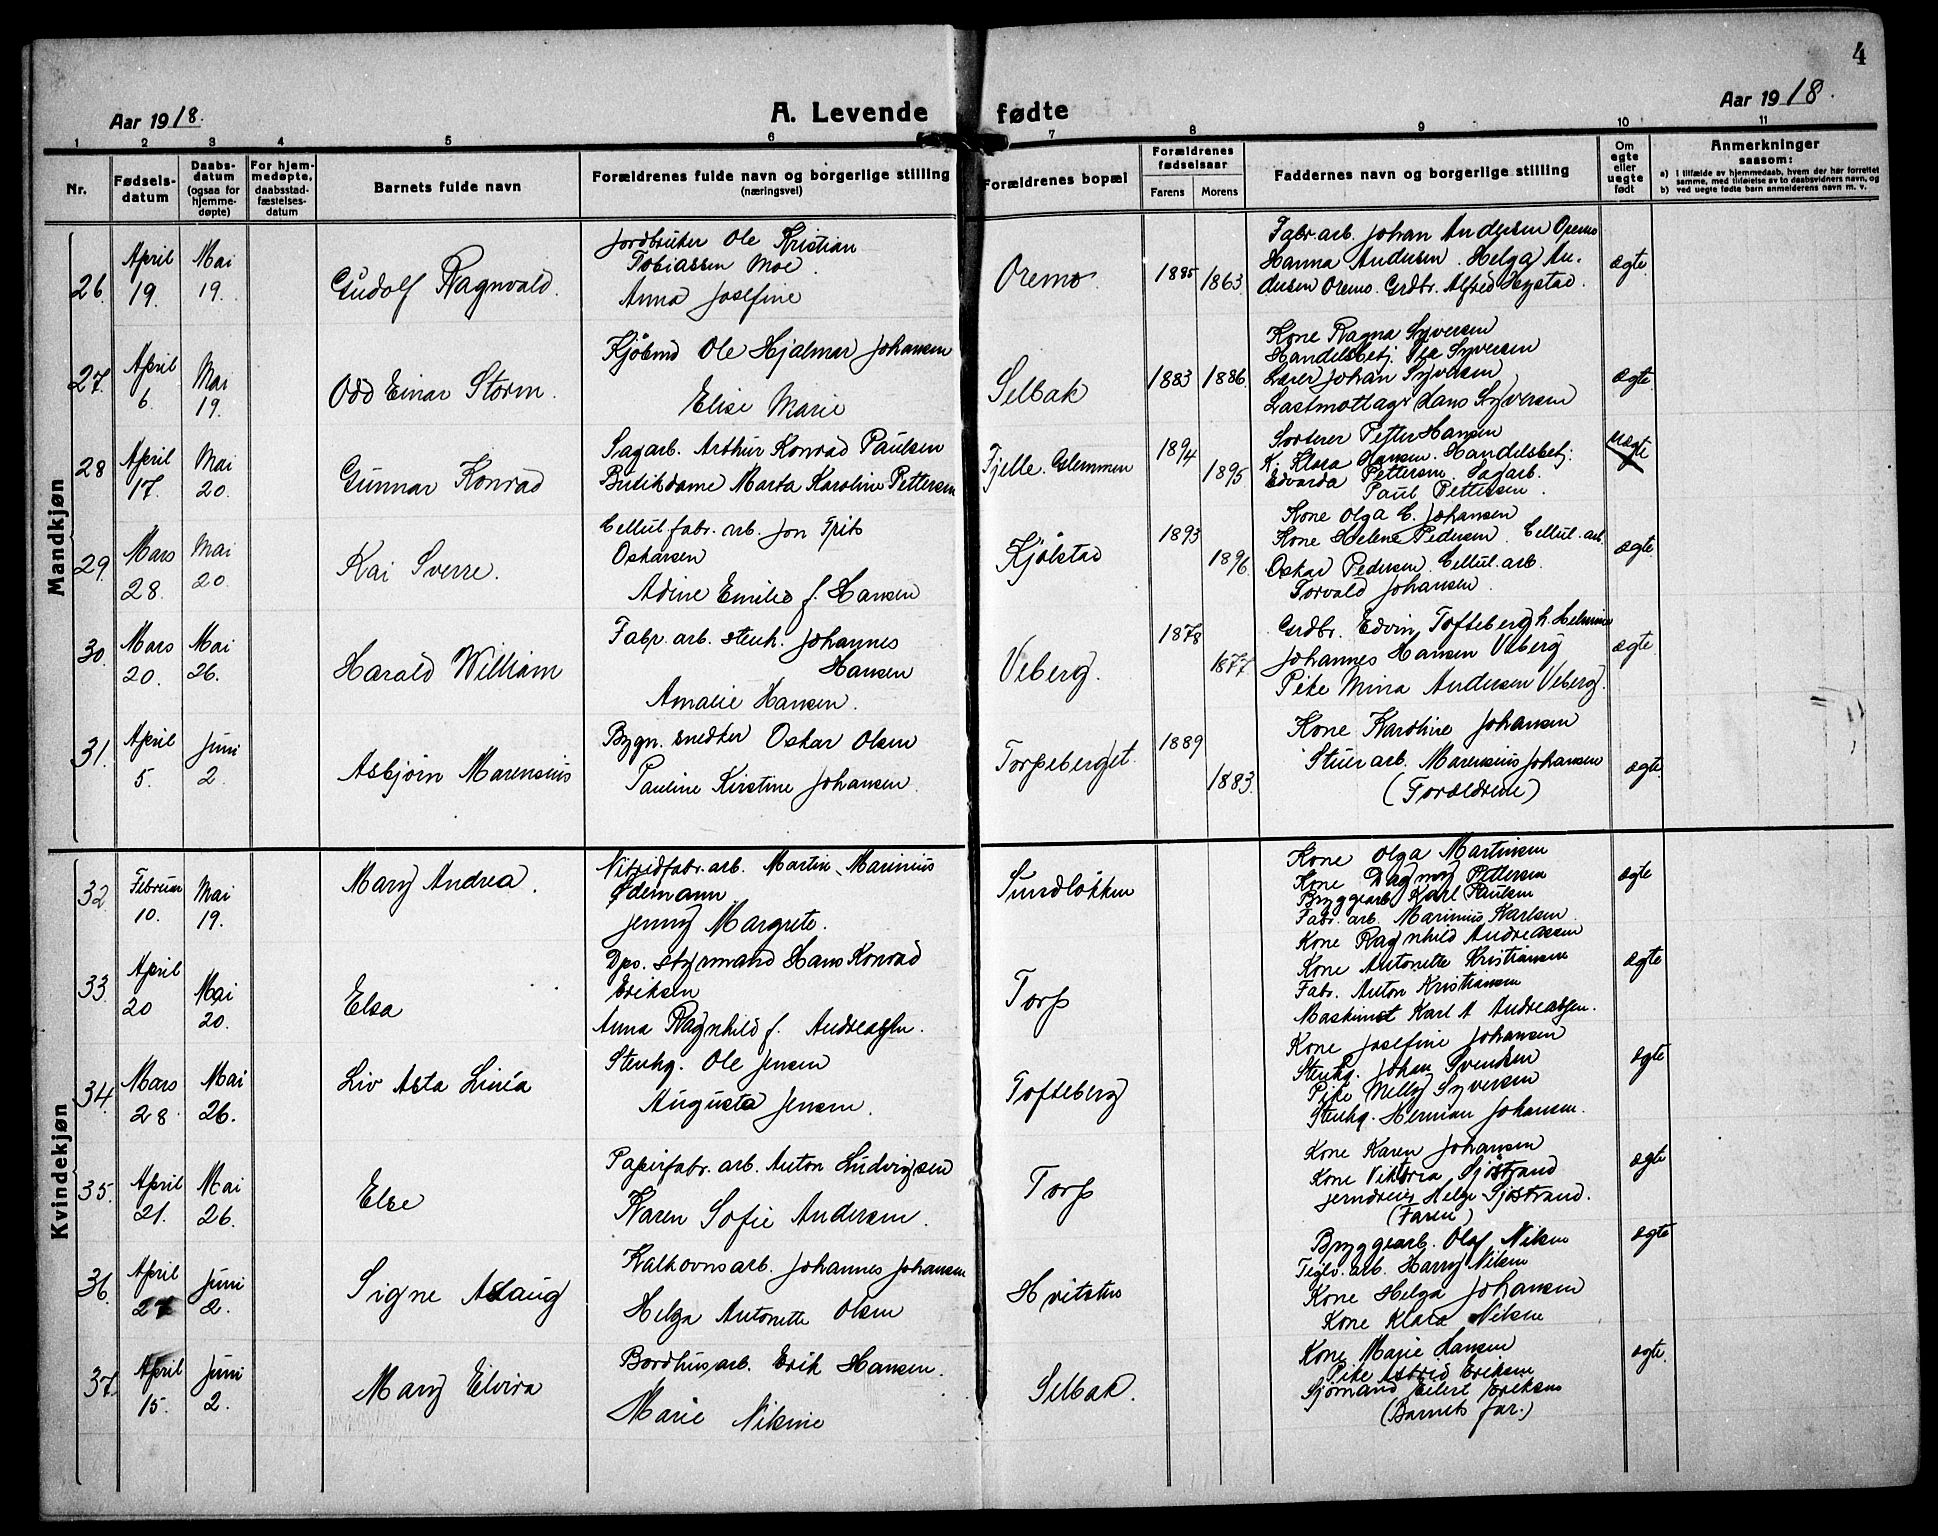 4
Aar 1918.
A. Levende fødte
Aar 1918.
1 2 3 4 5 6 7 8 9 10 11
Nr.
Fødselsdatum
Daabsdatum (ogsaa for hjemmedøpte)
For hjemmedøpte, daabsstadfæstelsesdatum
Barnets fulde navn
Forældrenes fulde navn og borgerlige stilling (næringsvei)
Forældrenes bopæl
Forældrenes fødselsaar
Farens Morens
Faddernes navn og borgerlige stilling
Om egte eller uegte født
Anmerkninger saasom:
a) i tilfælde av hjemmedaab, hvem der har forrettet samme, med tilføielse av to daabsvidners navn, og
b) ved uegte fødte barn anmelderens navn m. v.
Mandkjøn
26. April 19. Mai 19.
Gudolf Ragnvald.
Jordbruker Ole Kristian
Tobiassen Moe.
Anna Josefine
Oremo.
1885 1863.
Fabr. arb. Johan Andersen Oremo
Hanna Andersen. Helga An-
dersen Oremo. Grdbr. Alfred Hystad.
ægte.
27. April 6. Mai 19.
Odd Einar Storm.
Kjøbmd Ole Hjalmar Johansen
Elise Marie
Selbak
1883 1886.
Kone Ragna Syversen
Handelsbetj. Syversen
Lærer Johan Syversen
Lastmottager Hans Syversen
ægte.
28 April 17. Mai 20.
Gunnar Konrad
Sagarb. Arthur Konrad Paulsen
Butikdame Marta Karoline Pettersen
Fjelle. Glemmen
1894 1895
Sorterer Petter Hansen
K. Klara Hansen. Handelsbetj.
Edvarda Pettersen Sagarb.
Paul Pettersen.
uægte
29. Mars 28. Mai 20.
Kai Sverre.
Cellul. fabr. arb. Jon Frits
Oskarsen
Adine Emilie f. Hansen
Kjølstad
1893 1896.
Kone Olga C. Johansen
Kone Helene Pedersen. Cellul. arb.
Oskar Pedersen. Cellul. arb.
Torvald Johansen.
ægte
30. Mars 20. Mai 26.
Harald William
Fabr. arb. stenh. Johannes
Hansen
Amalie Hansen.
Veberg.
1878 1877.
Grdbr. Edvin Tofteberg h. Helmine
Johannes Hansen Veberg
Pike Mina Andersen Veberg.
ægte
31. April 5. Juni 2.
Asbjørn Marensius
Bygn. snedker Oskar Olsen
Pauline Kirstine Johansen.
Torpeberget.
1889 1883.
Kone Karoline Johansen
Stuerarb. Marensius Johansen
(Forældrene)
ægte
Kvindekjøn
32 Februar 10. Mai 19.
Mary Andrea.
Nitridfabr. arb. Martin Marinius
Ødemann
Jenny Margrete.
Sundløkken
Kone Olga Martinsen
Kone Dagmy Pettersen
Bryggearb. Karl Paulsen
Fabr. arb. Marinius Karlsen.
ægte
33. April 20 Mai 20.
Elsa
Dps. styrmand Hans Konrad
Eriksen
Anna Ragnhild f. Andreassen.
Torp
Kone Ragnhild Andreassen
Kone Antonette Kristiansen
Fabr. Anton Kristiansen
Maskinist Karl A Andreassen.
ægte
34. Mars 28. Mai 26.
Liv Asta Linéa
Stenhg. Ole Jensen
Augusta Jensen.
Tofteberg
Kone Josefine Johansen
Stenhg. Johan Svendsen
Pike Nelly Syversen
Stenhg. Herman Johansen.
ægte
35. April 21. Mai 26.
Else
Papirfabr. arb. Anton Ludvigsen
Karen Sofie Andersen.
Torp
Kone Karen Johansen
Kone Viktoria Sjöstrand
jerndreier Helge Sjöstrand.
(Faren)
ægte
36. April Juni 2.
Signe Aslaug
Kalkovnsarb. Johannes Johansen
Helga Antonette Olsen
Hvitsten
Bryggearb. Olaf Nilsen
Teglv. arb. Harry Nilsen
Kone Helga Johansen
Kone Klara Nilsen
ægte
37. April 15. Juni 2.
Mary Elvira
Bordhusarb. Erik Hansen.
Marie Nilsine
Selbak.
Kone Marie Hansen
Pike Astrid Eriksen
Sjømand Eilert Eriksen
(Barnets far.)
ægte.